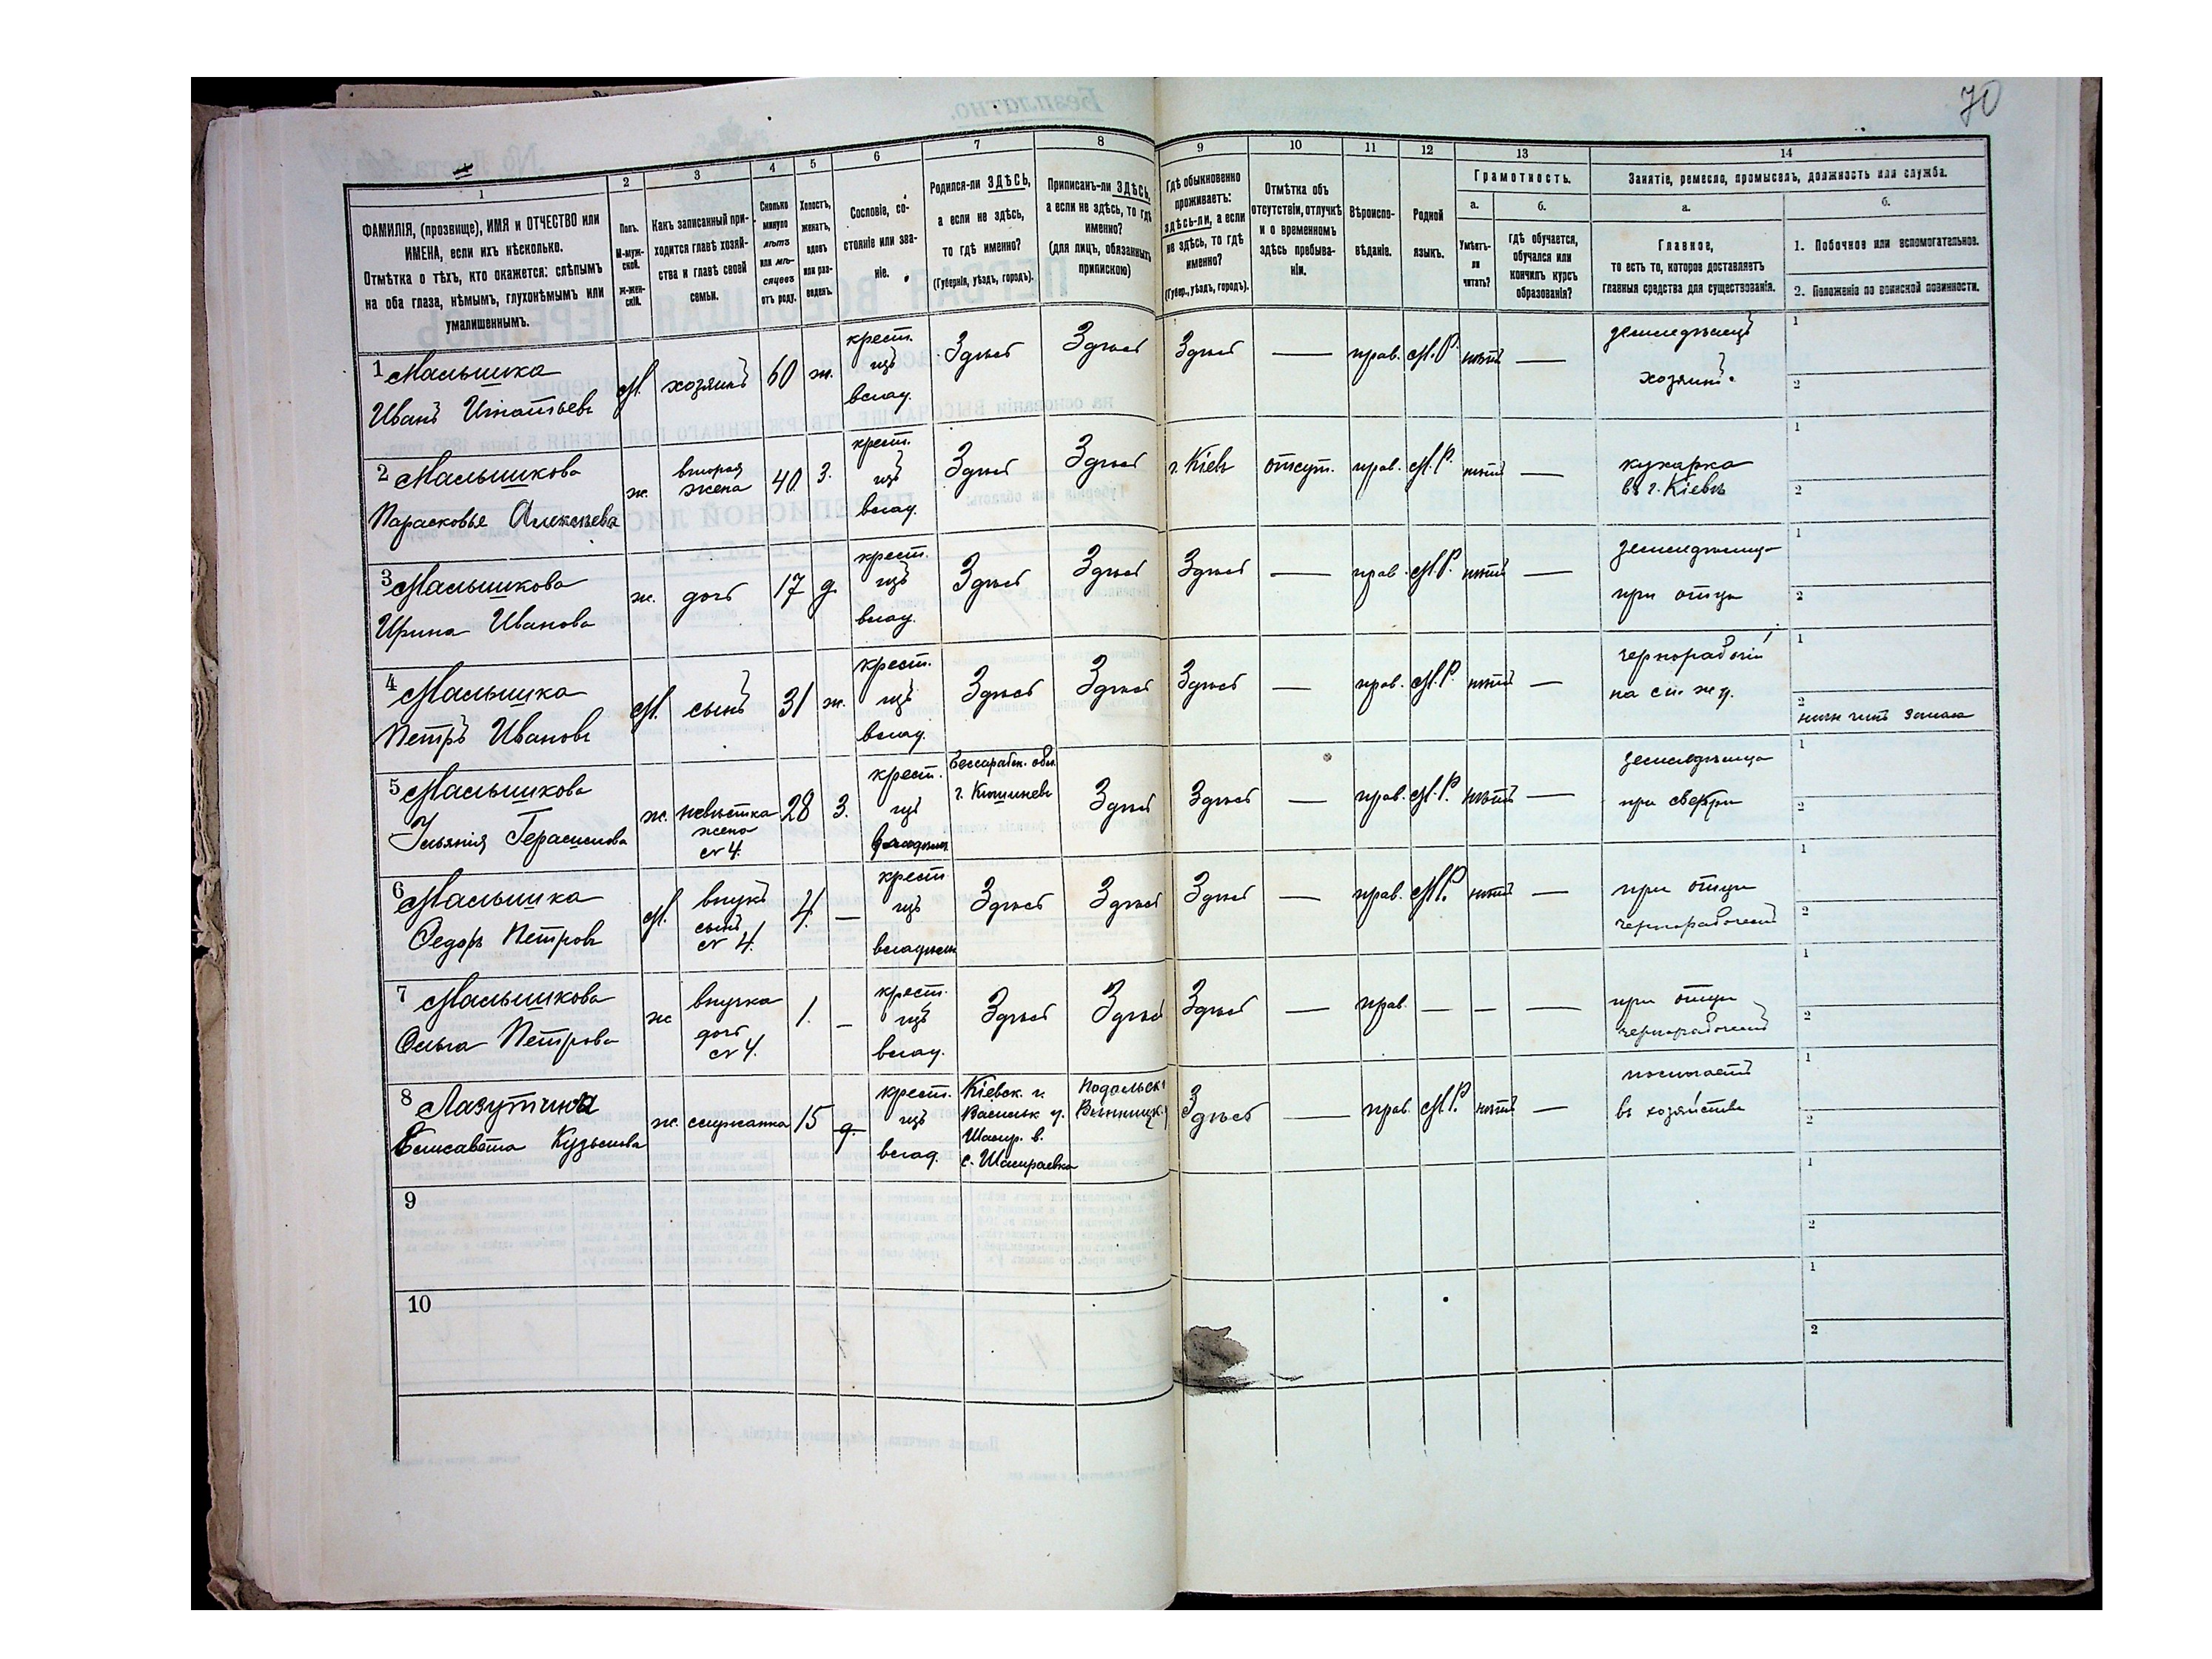 70
1 2 3 4 5 6 7 8 9 10 11 12 13 14
ФАМИЛІЯ, (прозвище), ИМЯ и ОТЧЕСТВО или
ИМЕНА, если ихъ нѣсколько.
Отмѣтка о тѣхъ, кто окажется: слѣпымъ
на оба глаза, нѣмымъ, глухонѣмымъ или
умалишеннымъ.
Полъ.
М-муж-
ской.
Ж-жен-
скій.
Какъ записанный при-
ходится главѣ хозяй-
ства и главѣ своей
семьи.
Сколько
минуло
лѣтъ
или мѣ-
сяцевъ
отъ роду.
Холостъ,
женатъ,
вдовъ
или раз-
веденъ.
Сословіе, со-
стояніе или зва-
ніе.
Родился-ли ЗДѢСЬ,
а если не здѣсь,
то гдѣ именно?
(Губернія, уѣздъ, городъ).
Приписанъ-ли ЗДѢСЬ,
а если не здѣсь, то гдѣ
именно?
(для лицъ, обязанныхъ
припискою)
Гдѣ обыкновенно
проживаетъ:
здѣсь-ли, а если
не здѣсь, то гдѣ
именно?
(Губер., уѣздъ, городъ).
Отмѣтка объ
отсутствіи, отлучкѣ
и о временномъ
здѣсь пребыва-
ніи.
Вѣроиспо-
вѣданіе.
Родной
языкъ.
Грамотность.
а.
Умѣетъ-
ли
читать?
б.
Гдѣ обучается,
обучался или
кончилъ курсъ
образованія?
Занятіе, ремесло, промыселъ, должность или служба.
а.
Главное,
то есть то, которое доставляетъ
главныя средства для существованія.
б.
1. Побочное или вспомогательное.
2. Положеніе по воинской повинности.
1 Малышка
Иванъ Игнатьевъ
М. хозяинъ 60 ж.
крест.
изъ
влад.
Здѣсь Здѣсь Здѣсь — прав. М.Р. нѣтъ —
земледѣлецъ
хозяинъ.
1
2
2 Малышкова
Парасковья Алексѣева
ж.
вторая
жена
40 з.
крест.
изъ
влад.
Здѣсь Здѣсь г. Кіевъ отсут. прав. М.Р. нѣтъ —
кухарка
въ г. Кіевѣ
1
2
3 Малышкова
Ирина Иванова
ж. дочь 17 д.
крест.
изъ
влад.
Здѣсь Здѣсь Здѣсь — прав. М.Р. нѣтъ —
земледѣлица
при отцѣ
1
2
4 Малышка
Петръ Ивановъ
М. сынъ 31 ж.
крест.
изъ
влад.
Здѣсь Здѣсь Здѣсь — прав. М.Р. нѣтъ —
чернорабочій
на ст. ж д.
1
2
нижн чинъ запаса
5 Малышкова
Герасимова
ж. невѣстка
жена
№ 4.
28 з.
крест.
изъ
Бессарабск. обл.
г. Кишиневъ
Здѣсь Здѣсь — прав. М.Р. нѣтъ —
земледѣлица
при свекрѣ
1
2
6 Малышка
Федоръ Петровъ
М.
внукъ
сынъ
№ 4.
4. —
крест.
изъ
владѣльч
Здѣсь Здѣсь Здѣсь — прав. М.Р. нѣтъ —
при отцѣ
чернорабочемъ
1
2
7 Малышкова
Ольга Петрова
ж
внучка
дочь
№ 4.
1. —
крест.
изъ
влад.
Здѣсь Здѣсь Здѣсь — прав. — — —
при отцѣ
чернорабочемъ
1
2
8 Лазуткина
Елисавета Кузьмова
ж. служанка 15 д.
крест.
изъ
влад.
Кіевск. г.
Васильк у.
Шамр. в.
с. Шамраевка
Подольск
Винницк.
Здѣсь — прав. М.Р. нѣтъ —
помогаетъ
въ хозяйствѣ
1
2
9
1
2
10
1
2